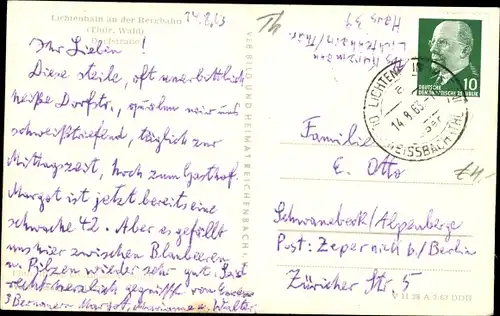 Lichtenhain an der Bergbahn
(Thür. Wald)
Dorfstraße
14.8.63
Ihr Lieben!
Diese steile, oft unerbittlich
heiße Dorfstr., wir uns
schweißtriefend, täglich zur
Mittagszeit, hoch zum Gasthof.
Margot ist jetzt bereits eine
schwache 42. Aber es gefällt
uns hier zwischen Blaubeeren
u. Pilzen wieder sehr gut. Seid
recht herzlich gegrüßt von Euren
3 Bernauern Margot, Marianne u. Walter.
VEB BILD UND HEIMAT REICHENBACH i. V.
Th
Lichtenhain/Thür.
Haus 39
DEUTSCHE
DEMOKRATISCHE REPUBLIK
10
14.8.63
Familie
E. Otto
Schwanebeck/Alpenberge
Post: Zepernick b/Berlin
Züricher Str. 5
V 11 28 A 5/63 DDR